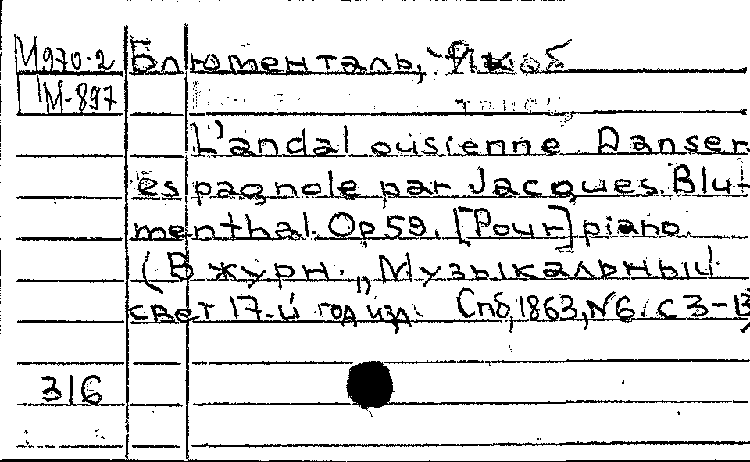 М970-2 Блюменталь, Якоб
М-897
L'andalousienne Danser
espagnole par Jacques Blu-
menthal. Op 59. [Pour] piano.
(В журн. „Музыкальный
свет 17-й год изд. Спб, 1863, № 6. с 3-8)
316